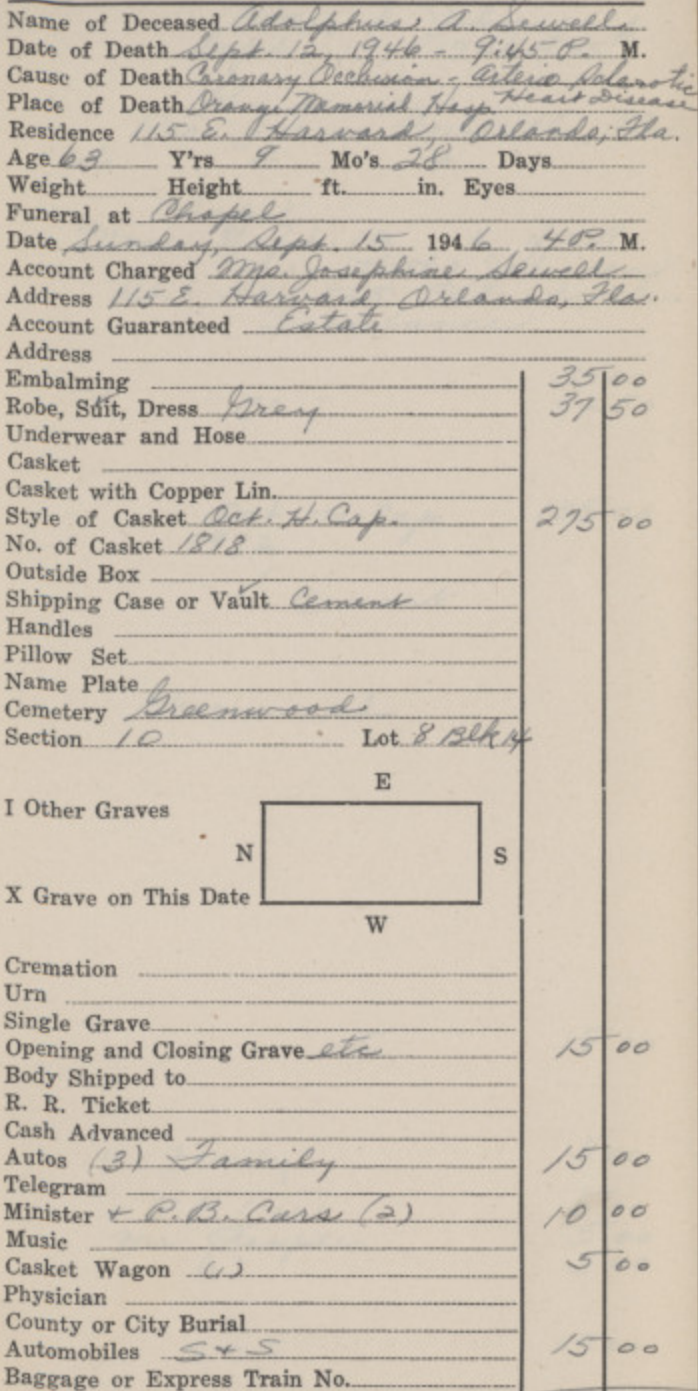 Name of Deceased Adolphus A. Sewell
Date of Death Sept. 12, 1946 - 9:45 P. M.
Cause of Death Coronary Occusion - Artero Sclarotic
Heart Disease
Place of Death Orange Memorial Hosp
Residence 115 E. Harvard, Orlando, Fla.
Age 63 Y'rs 9 Mo's 28 Days
Weight Height ft. in. Eyes
Funeral at Chapel
Date Sunday, Sept. 15 1946 4 P. M.
Account Charged Mrs. Josephine Sewell
Address 115 E. Harvard, Orlando, Fla.
Account Guaranteed Estate
Address
Embalming 35 00
Robe, Suit, Dress Grey 37 50
Underwear and Hose
Casket
Casket with Copper Lin.
Style of Casket Oct. H. Cap. 275 00
No. of Casket 1818
Outside Box
Shipping Case or Vault Cement
Handles
Pillow Set
Name Plate
Cemetery Greenwood
Section 10 Lot 8 Blk 14
E
I Other Graves
N S
X Grave on This Date
W
Cremation
Urn
Single Grave
Opening and Closing Grave etc 15 00
Body Shipped to
R. R. Ticket
Cash Advanced
Autos (3) Family 15 00
Telegram
Minister + P.B. Cars (2) 10 00
Music
Casket Wagon (1) 5 00
Physician
County or City Burial
Automobiles S + S 15 00
Baggage or Express Train No.